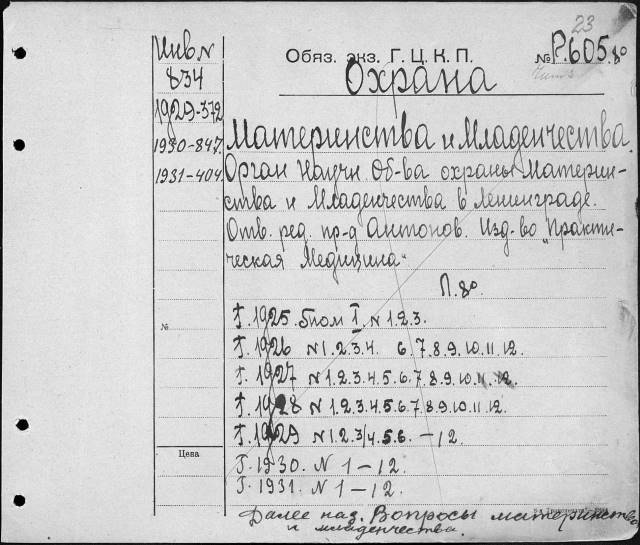 23
Инв №
834
1929-372
1930-847
1931-404
Обяз. экз. Г. Ц. К. П.
№ Р.605.8º
Охрана
Материнства и Младенчества.
Орган Научн. Об-ва охраны Материн-
ства и Младенчества в Ленинграде.
Отв. ред. пр-д Антонов. Изд-во „Практи-
ческая Медицина“
Л. 8º.
Г. 1925. Том I. N 1.2.3.
№
Г. 1926 N 1.2.3.4. 6.7.8.9.10.11.12.
Г. 1927 N 1.2.3.4.5.6.7.8.9.10.11.12.
Г. 1928 N 1.2.3.4.5.6.7.8.9.10.11.12.
Г. 1929 N 1.2.3/4.5.6. – 12.
Цена
Г. 1930. N 1 – 12.
Г. 1931. N 1 – 12.
Далее наз. Вопросы материнства
и младенчества.